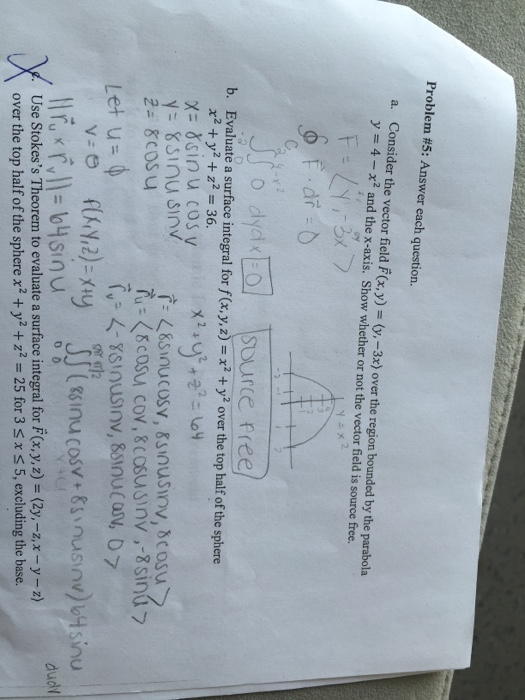 Problem #5: Answer each question.
a. Consider the vector field F⃗(x, y) = ⟨y, −3x⟩ over the region bounded by the parabola
y = 4 − x² and the x-axis. Show whether or not the vector field is source free.
F = ⟨y, -3x⟩
y = x²
∮ F⃗ · dr⃗ = 0
C
∫∫ 0 dydx = 0
source free
b. Evaluate a surface integral for f(x, y, z) = x² + y² over the top half of the sphere
x² + y² + z² = 36.
x = 8sinu cosv
x² + y² + z² = 64
y = 8sinu sinv
z = 8cosu
r⃗ = ⟨8sinucosv, 8sinusinv, 8cosu⟩
r⃗u = ⟨8cosu cosv, 8cosusinv, -8sinu⟩
r⃗v = ⟨-8sinusinv, 8sinucosv, 0⟩
Let u = ϕ
v = θ
f(x,y,z) = x+y
||r⃗u × r⃗v|| = 64sinu
∫∫ (8sinucosv + 8sinusinv) 64sinu
dudv
c. Use Stokes's Theorem to evaluate a surface integral for F⃗(x, y, z) = ⟨2y, −z, x − y − z⟩
over the top half of the sphere x² + y² + z² = 25 for 3 ≤ x ≤ 5, excluding the base.